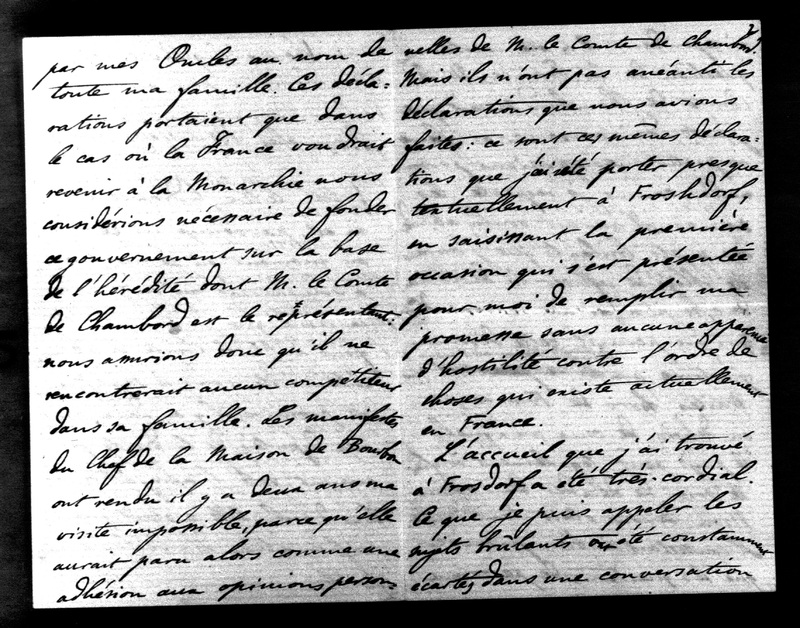 par mes Oncles au nom de
toute ma famille. Ces décla=
rations portaient que dans
le cas où la France voudrait
revenir à la Monarchie nous
considérions nécessaire de fonder
ce gouvernement sur la base
de l'hérédité dont M. le Comte
de Chambord est le représentant:
nous assurions donc qu'il ne
rencontrerait aucun compétiteur
dans sa famille. Les manifestes
du Chef de la Maison de Bourbon
ont rendu il y a deux ans ma
visite impossible, parce qu'elle
aurait paru alors comme une
adhésion aux opinions person=
nelles de M. le Comte de Chambord.
Mais ils n'ont pas anéanti les
déclarations que nous avions
faites: ce sont ces mêmes déclara=
tions que j'ai été porter presque
textuellement à Froshdorf,
en saisissant la première
occasion qui s'est présentée
pour moi de remplir ma
promesse sans aucune apparence
d'hostilité contre l'ordre de
choses qui existe actuellement
en France.
L'accueil que j'ai trouvé
à Frosdorf a été très-cordial.
Ce que je puis appeler les
sujets brûlants ont été constamment
écartés dans une conversation